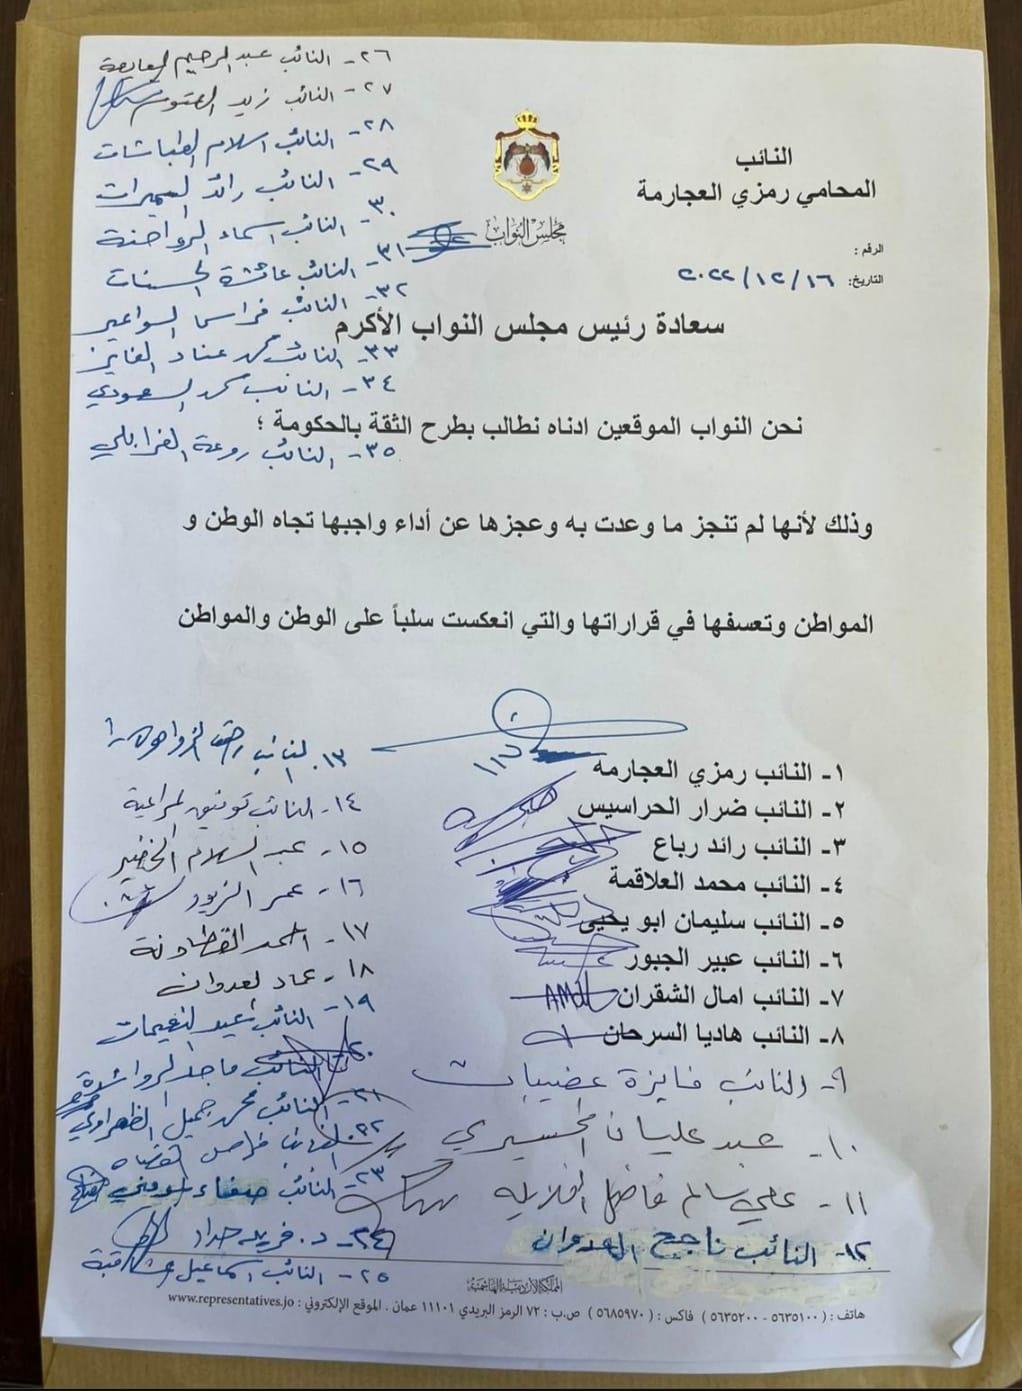 النائب
المحامي رمزي العجارمة
مجلس النواب
الرقم :
التاريخ: ٢٠٢٢/١٢/١٦
سعادة رئيس مجلس النواب الأكرم
نحن النواب الموقعين ادناه نطالب بطرح الثقة بالحكومة ؛
وذلك لأنها لم تنجز ما وعدت به وعجزها عن أداء واجبها تجاه الوطن و
المواطن وتعسفها في قراراتها والتي انعكست سلباً على الوطن والمواطن
١- النائب رمزي العجارمه
٢- النائب ضرار الحراسيس
٣- النائب رائد رباع
٤- النائب محمد العلاقمة
٥- النائب سليمان ابو يحيى
٦- النائب عبير الجبور
٧- النائب امال الشقران
٨- النائب هاديا السرحان
٩- النائب فايزة عضيبات
١٠- عبد عليان المحسيري
١١- علي سالم فاضل الغلايله
١٢- النائب ناجح العدوان
١٣. النائب
١٤- النائب توفيق المراعية
١٥- عبد السلام الخضير
١٦- عمر الزيود
١٧- احمد القطاونة
١٨- عماد العدوان
١٩- النائب عيد النعيمات
٢٠- النائب ماجد الرواشدة
٢١- النائب محمد جميل الظهراوي
٢٢- النائب فراس القضاه
٢٣- النائب صفاء المومني
٢٤- د. فريد حداد
٢٥- النائب اسماعيل المشاقبة
٢٦- النائب عبد الرحيم المعايعة
٢٧- النائب زيد العتوم
٢٨- النائب اسلام الطباشات
٢٩- النائب رائد السميرات
٣٠- النائب اسماء الرواحنة
٣١- النائب عائشة الحسنات
٣٢- النائب فراس السواعير
٣٣- النائب محمد عناد الفايز
٣٤- النائب محمد السعودي
٣٥- النائب روعة الغرابلي
المملكة الأردنية الهاشمية
هاتف : ( ٥٦٣٥١٠٠ - ٥٦٣٥٢٠٠ ) فاكس : ( ٥٦٨٥٩٧٠ ) ص.ب : ٧٢ الرمز البريدي ١١١٠١ عمان . الموقع الإلكتروني : www.representatives.jo